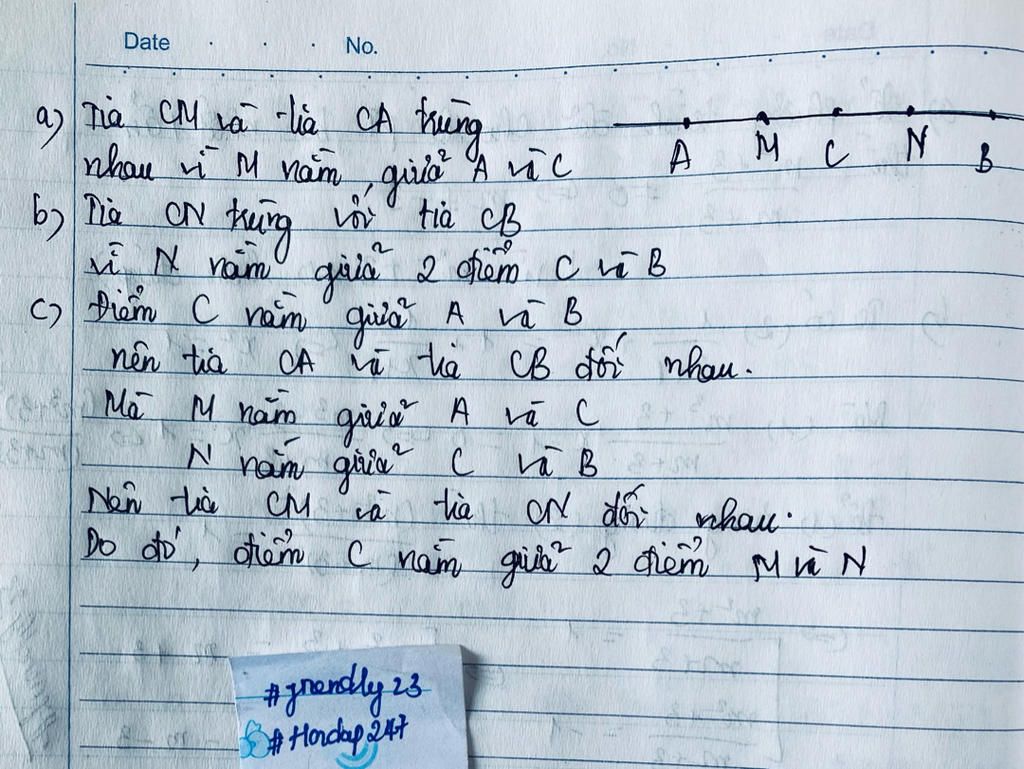 Date No.
a) Tia CM và tia CA trùng
nhau vì M nằm giữa A và C
A M C N B
b) Tia CN trùng với tia CB
vì N nằm giữa 2 điểm C và B
c) Điểm C nằm giữa A và B
nên tia CA và tia CB đối nhau.
Mà M nằm giữa A và C
N nằm giữa C và B
Nên tia CM và tia CN đối nhau.
Do đó, điểm C nằm giữa 2 điểm M và N
#Hoidap247